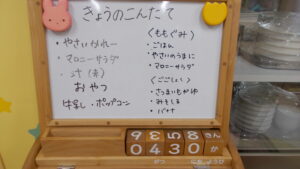 きょうのこんだて
・やさいカレー
・マロニーサラダ
・汁(赤)
おやつ
牛乳・ポップコーン
〈ももぐみ〉
・ごはん
・やさいのうまに
・マロニーサラダ
〈ごごしょく〉
・さつまいもがゆ
・みそしる
・バナナ
04 30 か
がつ にち ようび